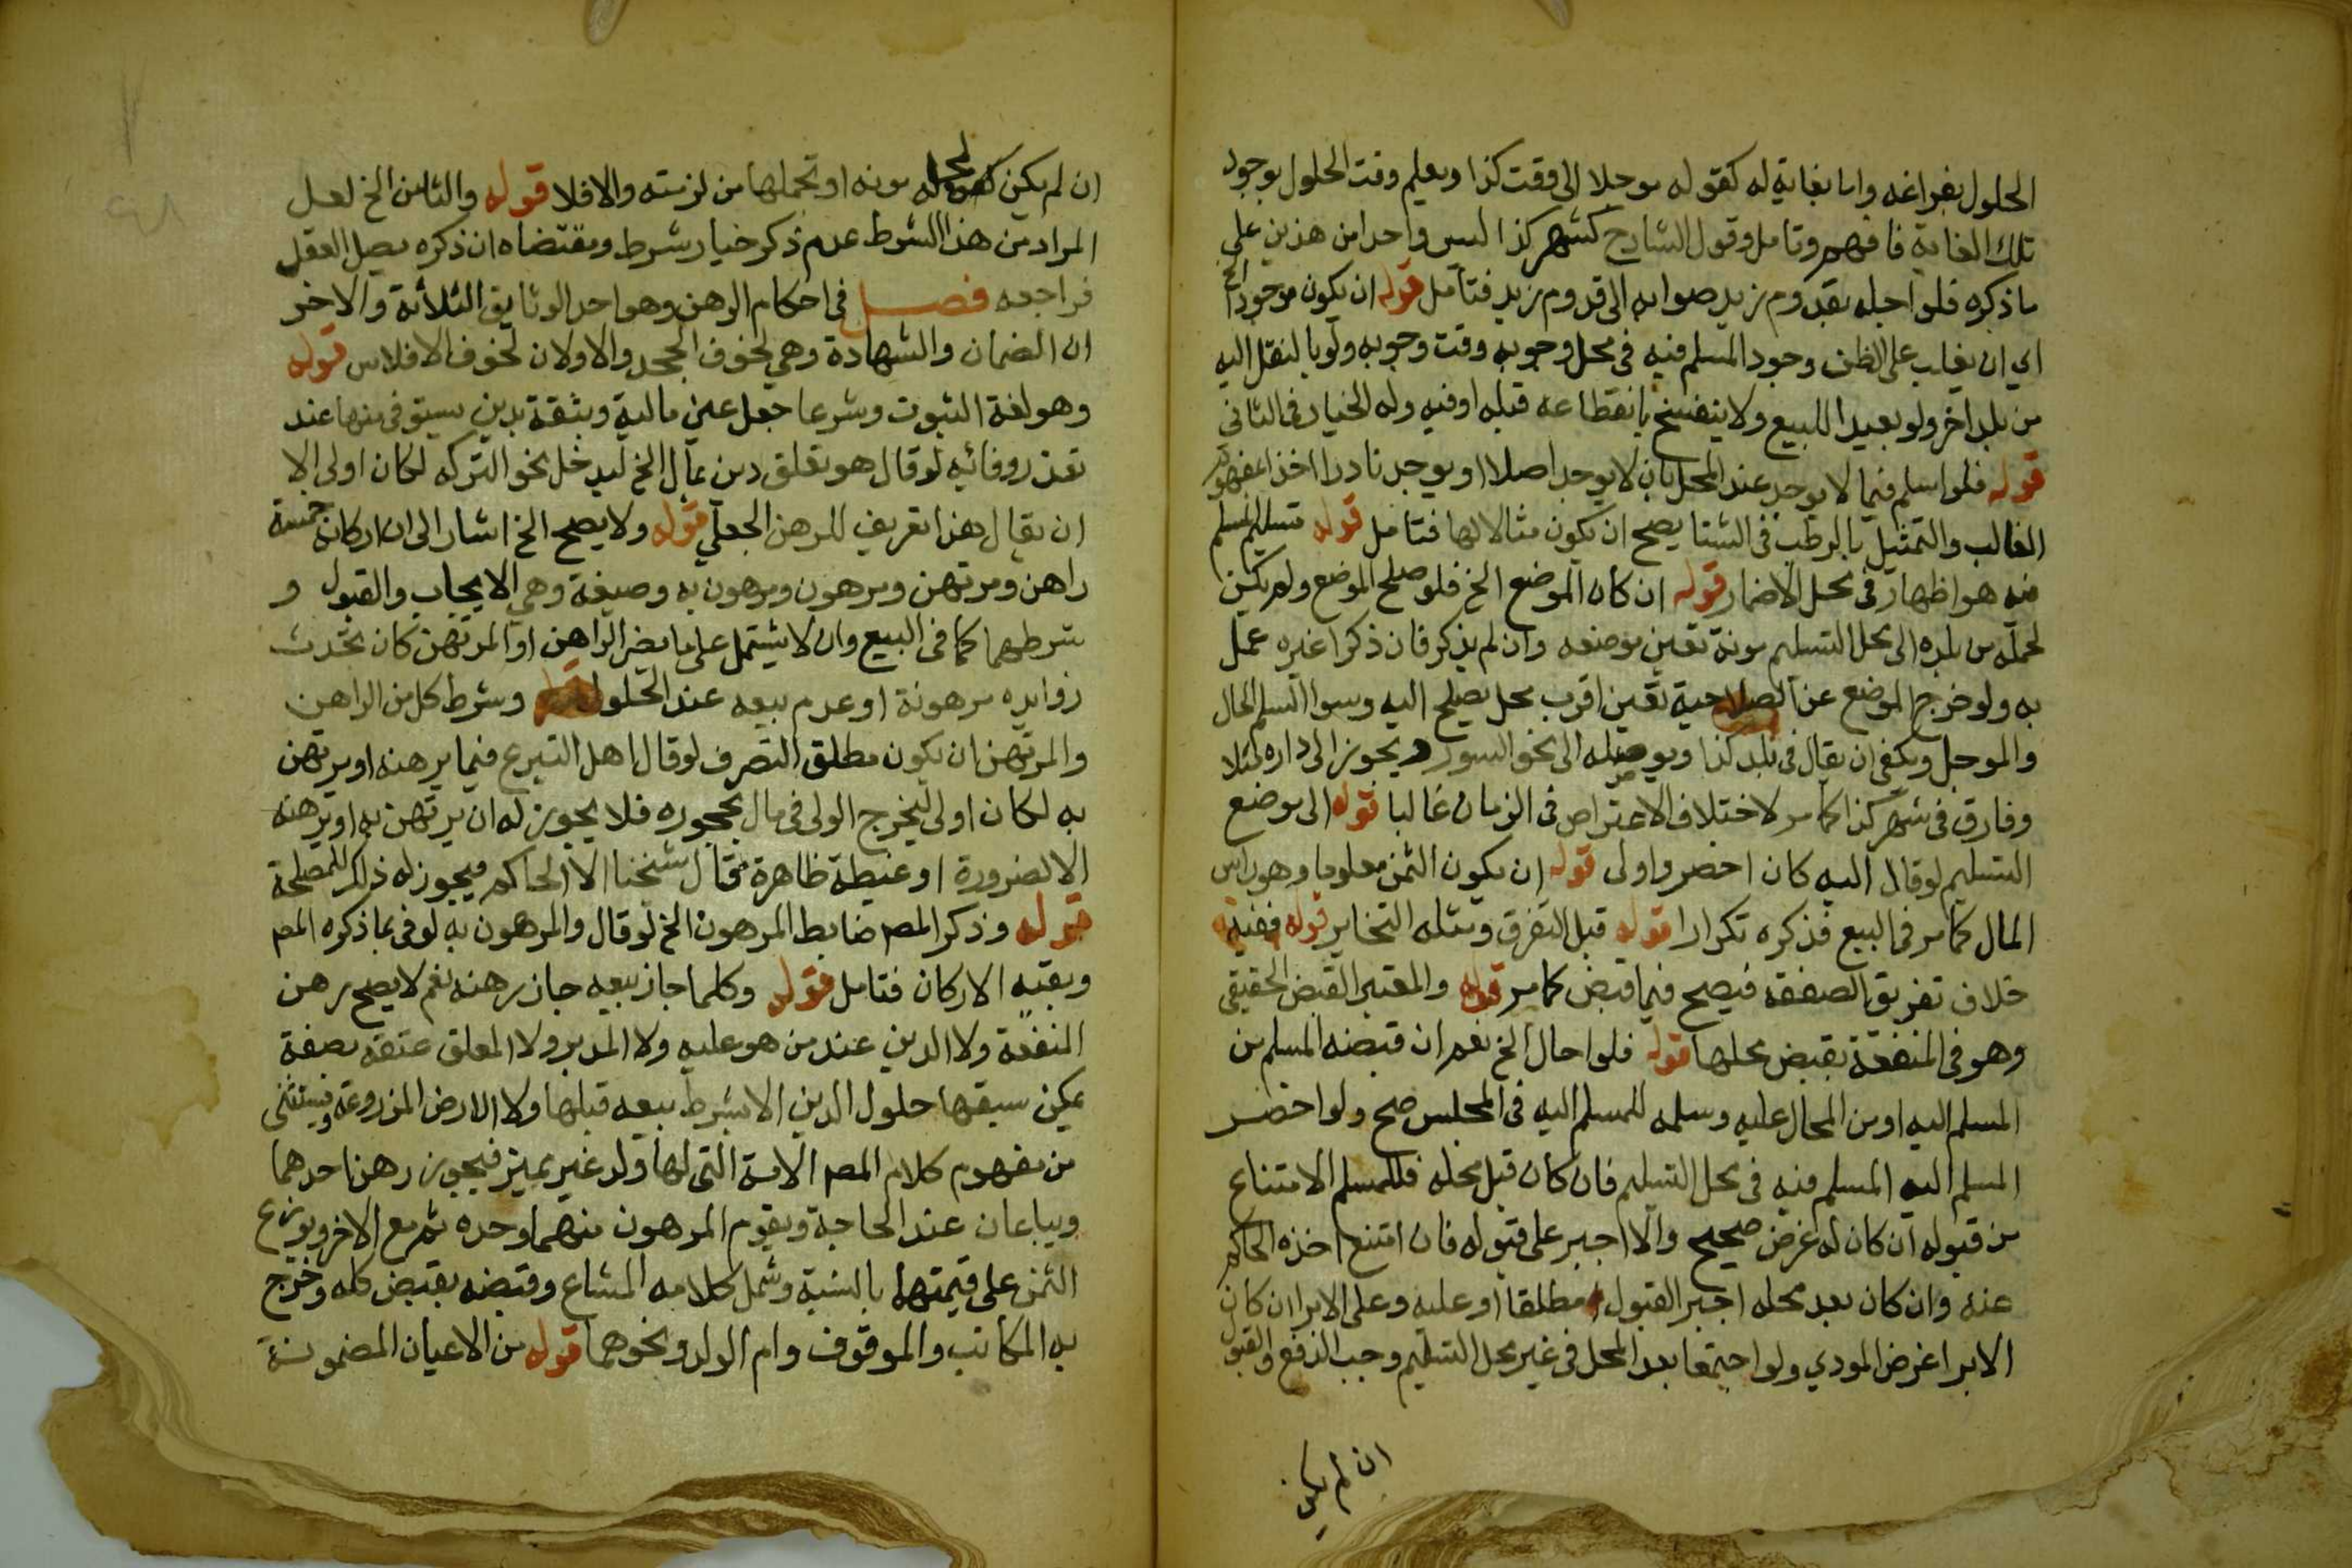 الحلول بفراغه واما بغاية له كقوله موجلا الى وقت كذا ويعلم وقت الحلول بوجود
تلك الغاية فافهم وتامل وقول الشارح كشهر كذا ليس واحدا من هذين على
ما ذكره فلو اجله بقدوم زيد صوابه الى قدوم زيد فتأمل قوله ان يكون موجودا الخ
اي ان يغلب على الظن وجود المسلم فيه في محل وجوبه وقت وجوبه ولو بالنقل اليه
من بلد اخر ولو بعيدا للبيع ولا ينفسخ بانقطاعه قبله او فيه وله الخيار في الثاني
قوله فلو اسلم فيما لا يوجد عند المحل بان لا يوجد اصلا او يوجد نادرا اخذا بمفهوم
الغالب والتمثيل بالرطب في الشتا يصح ان يكون مثالا لها فتامل قوله تسليم المسلم
فيه هو اظهار في محل الاضمار قوله ان كان الموضع الخ فلو صلح الموضع ولم يكن
لحمله من بلده الى محل التسليم مونة تعين موضعه وان لم يذكر فان ذكرا غيره عمل
به ولو خرج الموضع عن الصلاحية تعين اقرب محل يصلح اليه وسوا السلم الحال
والموجل ويكفي ان يقال في بلد كذا ويوصله الى نحو السور ويجوز الى داره مثلا
وفارق في شهر كذا كما مر لاختلاف الاعتراض في الزمان غالبا قوله الى موضع
التسليم لو قال اليه كان احصر واولى قوله ان يكون الثمن معلوما وهو راس
المال كما مر في البيع فذكره تكرارا قوله قبل التفرق ومثله التخاير قوله ففيه
خلاف تفريق الصفقة فيصح فيما قبض كما مر قوله والمعتبر القبض الحقيقي
وهو في المنفعة بقبض محلها قوله فلو احال الخ نعم ان قبضه المسلم من
المسلم اليه او من المحال عليه وسلمه للمسلم اليه في المجلس صح ولو احضر
المسلم اليه المسلم فيه في محل التسليم فان كان قبل محله فللمسلم الامتناع
من قبوله ان كان له غرض صحيح والا اجبر على قبوله فان امتنع اخذه الحاكم
عنه وان كان بعد محله اجبر القبول مطلقا او عليه وعلى الابرا ان كان
الابرا غرض المودي ولو اجتمعا بعد المحل في غير محل التسليم وجب الدفع والقبول
ان لم يكن
ان لم يكن لحمله مونه او تحملها من لزمته والا فلا قوله والثامن الخ لعل
المراد من هذا الشرط عدم ذكر خيار شرط ومقتضاه ان ذكره يصل العقل
فراجعه فصل في احكام الرهن وهو احد الوثايق الثلاثة والاخر
ان الضمان والشهادة وهي لخوف الجحد والاولان لخوف الافلاس قوله
وهو لغة الثبوت وشرعا جعل عين مالية وثيقة بدين يستوفى منها عند
تعذر وفائيه لو قال هو تعلق دين بمال الخ ليدخل نحو التركه لكان اولى الا
ان يقال هذا تعريف للرهن الجعلي قوله ولا يصح الخ اشار الى ان اركانه خمسة
راهن ومرتهن ومرهون ومرهون به وصيغة وهي الايجاب والقبول و
شرطهما كما في البيع وان لا يشتمل على ما يضر الراهن او المرتهن كان تحدث
زوايده مرهونة او عدم بيعه عند الحلول قوله وشرط كل من الراهن
والمرتهن ان يكون مطلق التصرف لو قال اهل التبرع فيما يرهنه او يرتهن
به لكان اولى ليخرج الولي في مال محجوره فلا يجوز له ان يرتهن به او يرهنه
الا لضرورة او غبطة ظاهرة قال شيخنا الا الحاكم فيجوز له ذلك للمصلحة
قوله وذكر المصـ ضابط المرهون الخ لو قال والمرهون به لوفى بما ذكره المصـ
وبقيه الاركان فتامل قوله وكلما جاز بيعه جاز رهنه نعم لا يصح رهن
المنفعة ولا الدين عند من هو عليه ولا المدبر ولا المعلق عتقه بصفة
يمكن سبقها حلول الدين الا بشرط بيعه قبلها ولا الارض المزروعة ويستثنى
من مفهوم كلام المصـ الامة التي لها ولد غير مميز فيجوز رهن احدهما
ويباعان عند الحاجة ويقوم المرهون منهما وحده ثم مع الاخر ويوزع
الثمن على قيمتها بالنسبة وشمل كلامه المشاع وقبضه بقبض كله وخرج
به المكاتب والموقوف وام الولد ونحوهما قوله من الاعيان المضمونة